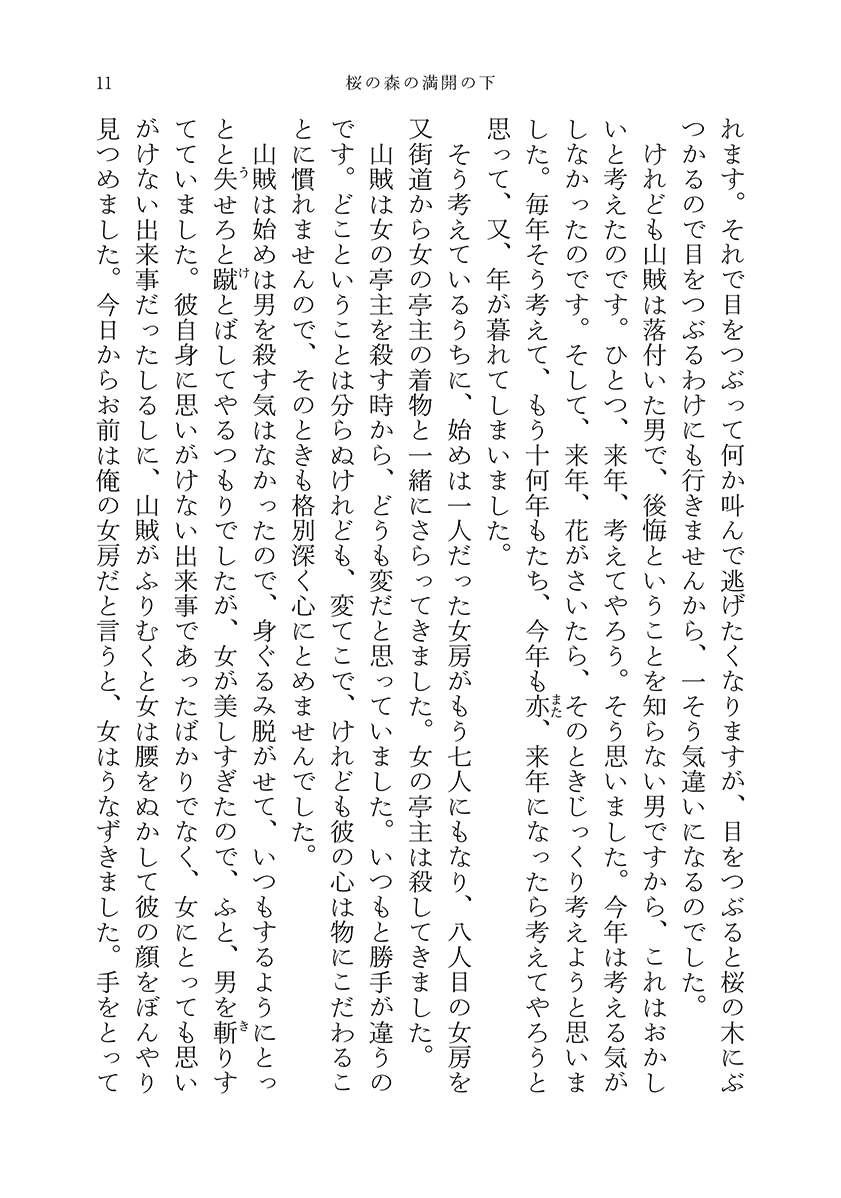 11
桜の森の満開の下
れます。それで目をつぶって何か叫んで逃げたくなりますが、目をつぶると桜の木にぶ
つかるので目をつぶるわけにも行きませんから、一そう気違いになるのでした。
けれども山賊は落付いた男で、後悔ということを知らない男ですから、これはおかし
いと考えたのです。ひとつ、来年、考えてやろう。そう思いました。今年は考える気が
しなかったのです。そして、来年、花がさいたら、そのときじっくり考えようと思いま
した。毎年そう考えて、もう十何年もたち、今年も亦、来年になったら考えてやろうと
思って、又、年が暮れてしまいました。
そう考えているうちに、始めは一人だった女房がもう七人にもなり、八人目の女房を
又街道から女の亭主の着物と一緒にさらってきました。女の亭主は殺してきました。
山賊は女の亭主を殺す時から、どうも変だと思っていました。いつもと勝手が違うの
です。どこということは分らぬけれども、変てこで、けれども彼の心は物にこだわるこ
とに慣れませんので、そのときも格別深く心にとめませんでした。
山賊は始めは男を殺す気はなかったので、身ぐるみ脱がせて、いつもするようにとっ
とと失せろと蹴とばしてやるつもりでしたが、女が美しすぎたので、ふと、男を斬りす
てていました。彼自身に思いがけない出来事であったばかりでなく、女にとっても思い
がけない出来事だったしるしに、山賊がふりむくと女は腰をぬかして彼の顔をぼんやり
見つめました。今日からお前は俺の女房だと言うと、女はうなずきました。手をとって